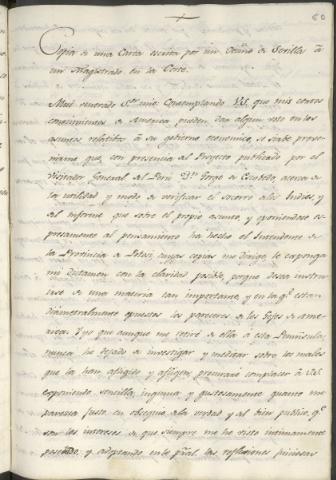 60
Copia de una Carta escrita por un Vecino de Sevilla á
un Magistrado en la Corte.
Muy venerado Sor. mio: Contemplando V.S. que mis cortos
conocimientos de America pueden dar algun voto en los
asuntos relatibos á su gobierno economico, se sirbe prese-
nirme que con presencia del Proyecto publicado por el
Visitador General del Perú Dn. Jorge de Escobedo, acerca de
la utilidad y modo de verificar el socorro a los Indios, y
del informe que sobre el propio asunto, y oponiendose es-
presamente al pensamiento ha hecho el Intendente de
la Provincia de Potosi, cuyas copias me dirige le exponga
mi Dictamen con la claridad posible, porque desea instru-
irse de una materia tan importante, y en la qe. estan
diametralmente opuestos los pareceres de los Gefes de ame-
rica. Y yo que aunque me retiré de ella á esta Peninsula,
nunca he dejado de investigar y meditar sobre los males
que la han afligido y afligen, procuraré complacer á V.S.
exponiendo sencilla, ingenua y gustosamente quanto me
parezca justo en obsequio de la verdad y del bien publico, qe.
son los intereses de que siempre me he visto intimamente
poseido; y adoptando en lo pral. las reflexiones juiciosas